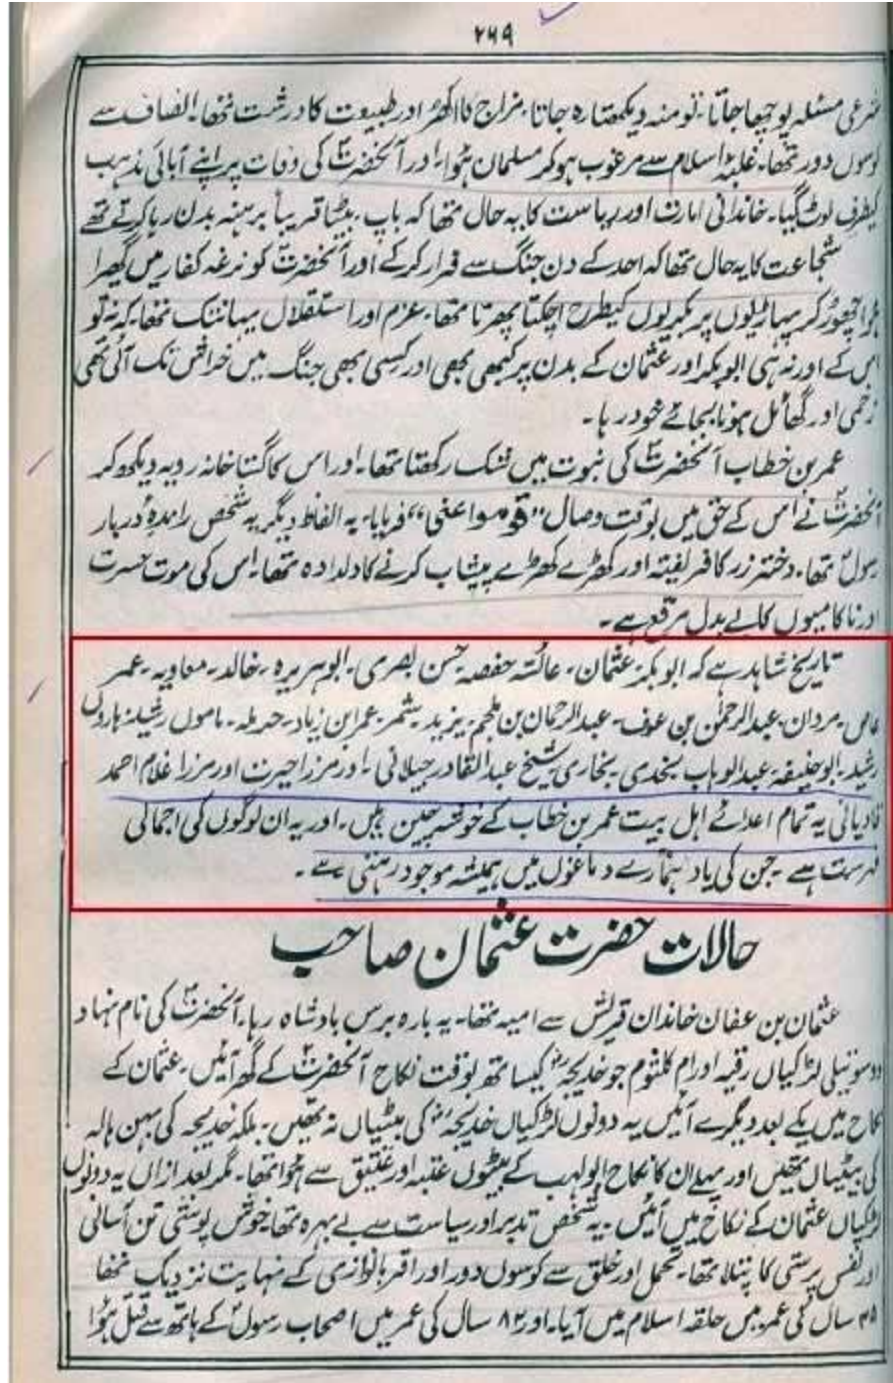 ۲۶۹
شرعی مسئلہ پوچھا جاتا۔ تو منہ دیکھتا رہ جاتا۔ مزاج کا اکھڑ اور طبیعت کا درشت تھا۔ انصاف سے
کوسوں دور تھا۔ غلبۂ اسلام سے مرغوب ہو کر مسلمان ہوا۔ اور آنحضرتؐ کی وفات پر اپنے آبائی مذہب
کیطرف لوٹ گیا۔ خاندانی امارت اور ریاست کا یہ حال تھا کہ باپ۔ بیٹا قریباً برہنہ بدن رہا کرتے تھے
شجاعت کا یہ حال تھا کہ احد کے دن جنگ سے فرار کر کے اور آنحضرتؐ کو نرغہ کفار میں گھرا
ہوا چھوڑ کر پہاڑیوں پر بکریوں کیطرح اچکتا پھرتا تھا۔ عزم اور استقلال یہانتک تھا۔ کہ نہ تو
اس کے اور نہ ہی ابوبکر اور عثمان کے بدن پر کبھی بھی اور کسی بھی جنگ میں خراش تک آئی تھی
زخمی اور گھائل ہونا بجائے خود رہا۔
عمر بن خطاب آنحضرتؐ کی نبوت میں شک رکھتا تھا۔ اور اس کا گستاخانہ رویہ دیکھ کر
آنحضرتؐ نے اس کے حق میں بوقت وصال ”قوموا عنی“ فرمایا۔ بہ الفاظ دیگر یہ شخص راندۂ دربار
رسولؐ تھا۔ دختر زر کا فریفتہ اور کھڑے کھڑے پیشاب کرنے کا دلدادہ تھا۔ اس کی موت حسرت
اور ناکامیوں کا بے بدل مرقع ہے۔
تاریخ شاہد ہے کہ ابوبکر۔ عثمان۔ عائشہ حفصہ حسن بصری۔ ابوہریرہ۔ خالد۔ معاویہ۔ عمر
عاص۔ مروان۔ عبدالرحمٰن بن عوف۔ عبدالرحمان بن ملجم۔ یزید۔ شمر۔ عمر ابن زیاد۔ حرملہ۔ ماموں رشید۔ ہاروں
رشید۔ ابوحنیفہ۔ عبدالوہاب نجدی۔ بخاری۔ شیخ عبدالقادر جیلانی۔ اور مرزا حیرت اور مرزا غلام احمد
قادیانی یہ تمام اعدائے اہل بیت عمر بن خطاب کے خوشہ چین ہیں۔ اور یہ ان لوگوں کی اجمالی
فہرست ہے۔ جن کی یاد ہمارے دماغوں میں ہمیشہ موجود رہتی ہے۔
حالات حضرت عثمان صاحب
عثمان بن عفان خاندان قریش سے امیہ تھا۔ یہ بارہ برس بادشاہ رہا۔ آنحضرتؐ کی نام نہاد
دو سوتیلی لڑکیاں رقیہ اور ام کلثوم جو خدیجہؓ کیساتھ بوقت نکاح آنحضرتؐ کے گھر آئیں۔ عثمان کے
نکاح میں یکے بعد دیگرے آئیں یہ دونوں لڑکیاں خدیجہؓ کی بیٹیاں نہ تھیں۔ بلکہ خدیجہ کی بہن ہالہ
کی بیٹیاں تھیں اور پہلے ان کا نکاح ابولہب کے بیٹوں عتبہ اور عتیق سے ہوا تھا۔ مگر بعد ازاں یہ دونوں
لڑکیاں عثمان کے نکاح میں آئیں۔ یہ شخص تدبر اور سیاست سے بے بہرہ تھا خوش پوشی تن آسانی
اور نفس پرستی کا پتلا تھا۔ تحمل اور خلق سے کوسوں دور اور اقربا نوازی کے نہایت نزدیک تھا
۳۵ سال کی عمر میں حلقہ اسلام میں آیا۔ اور ۸۲ سال کی عمر میں اصحاب رسولؐ کے ہاتھ سے قتل ہوا